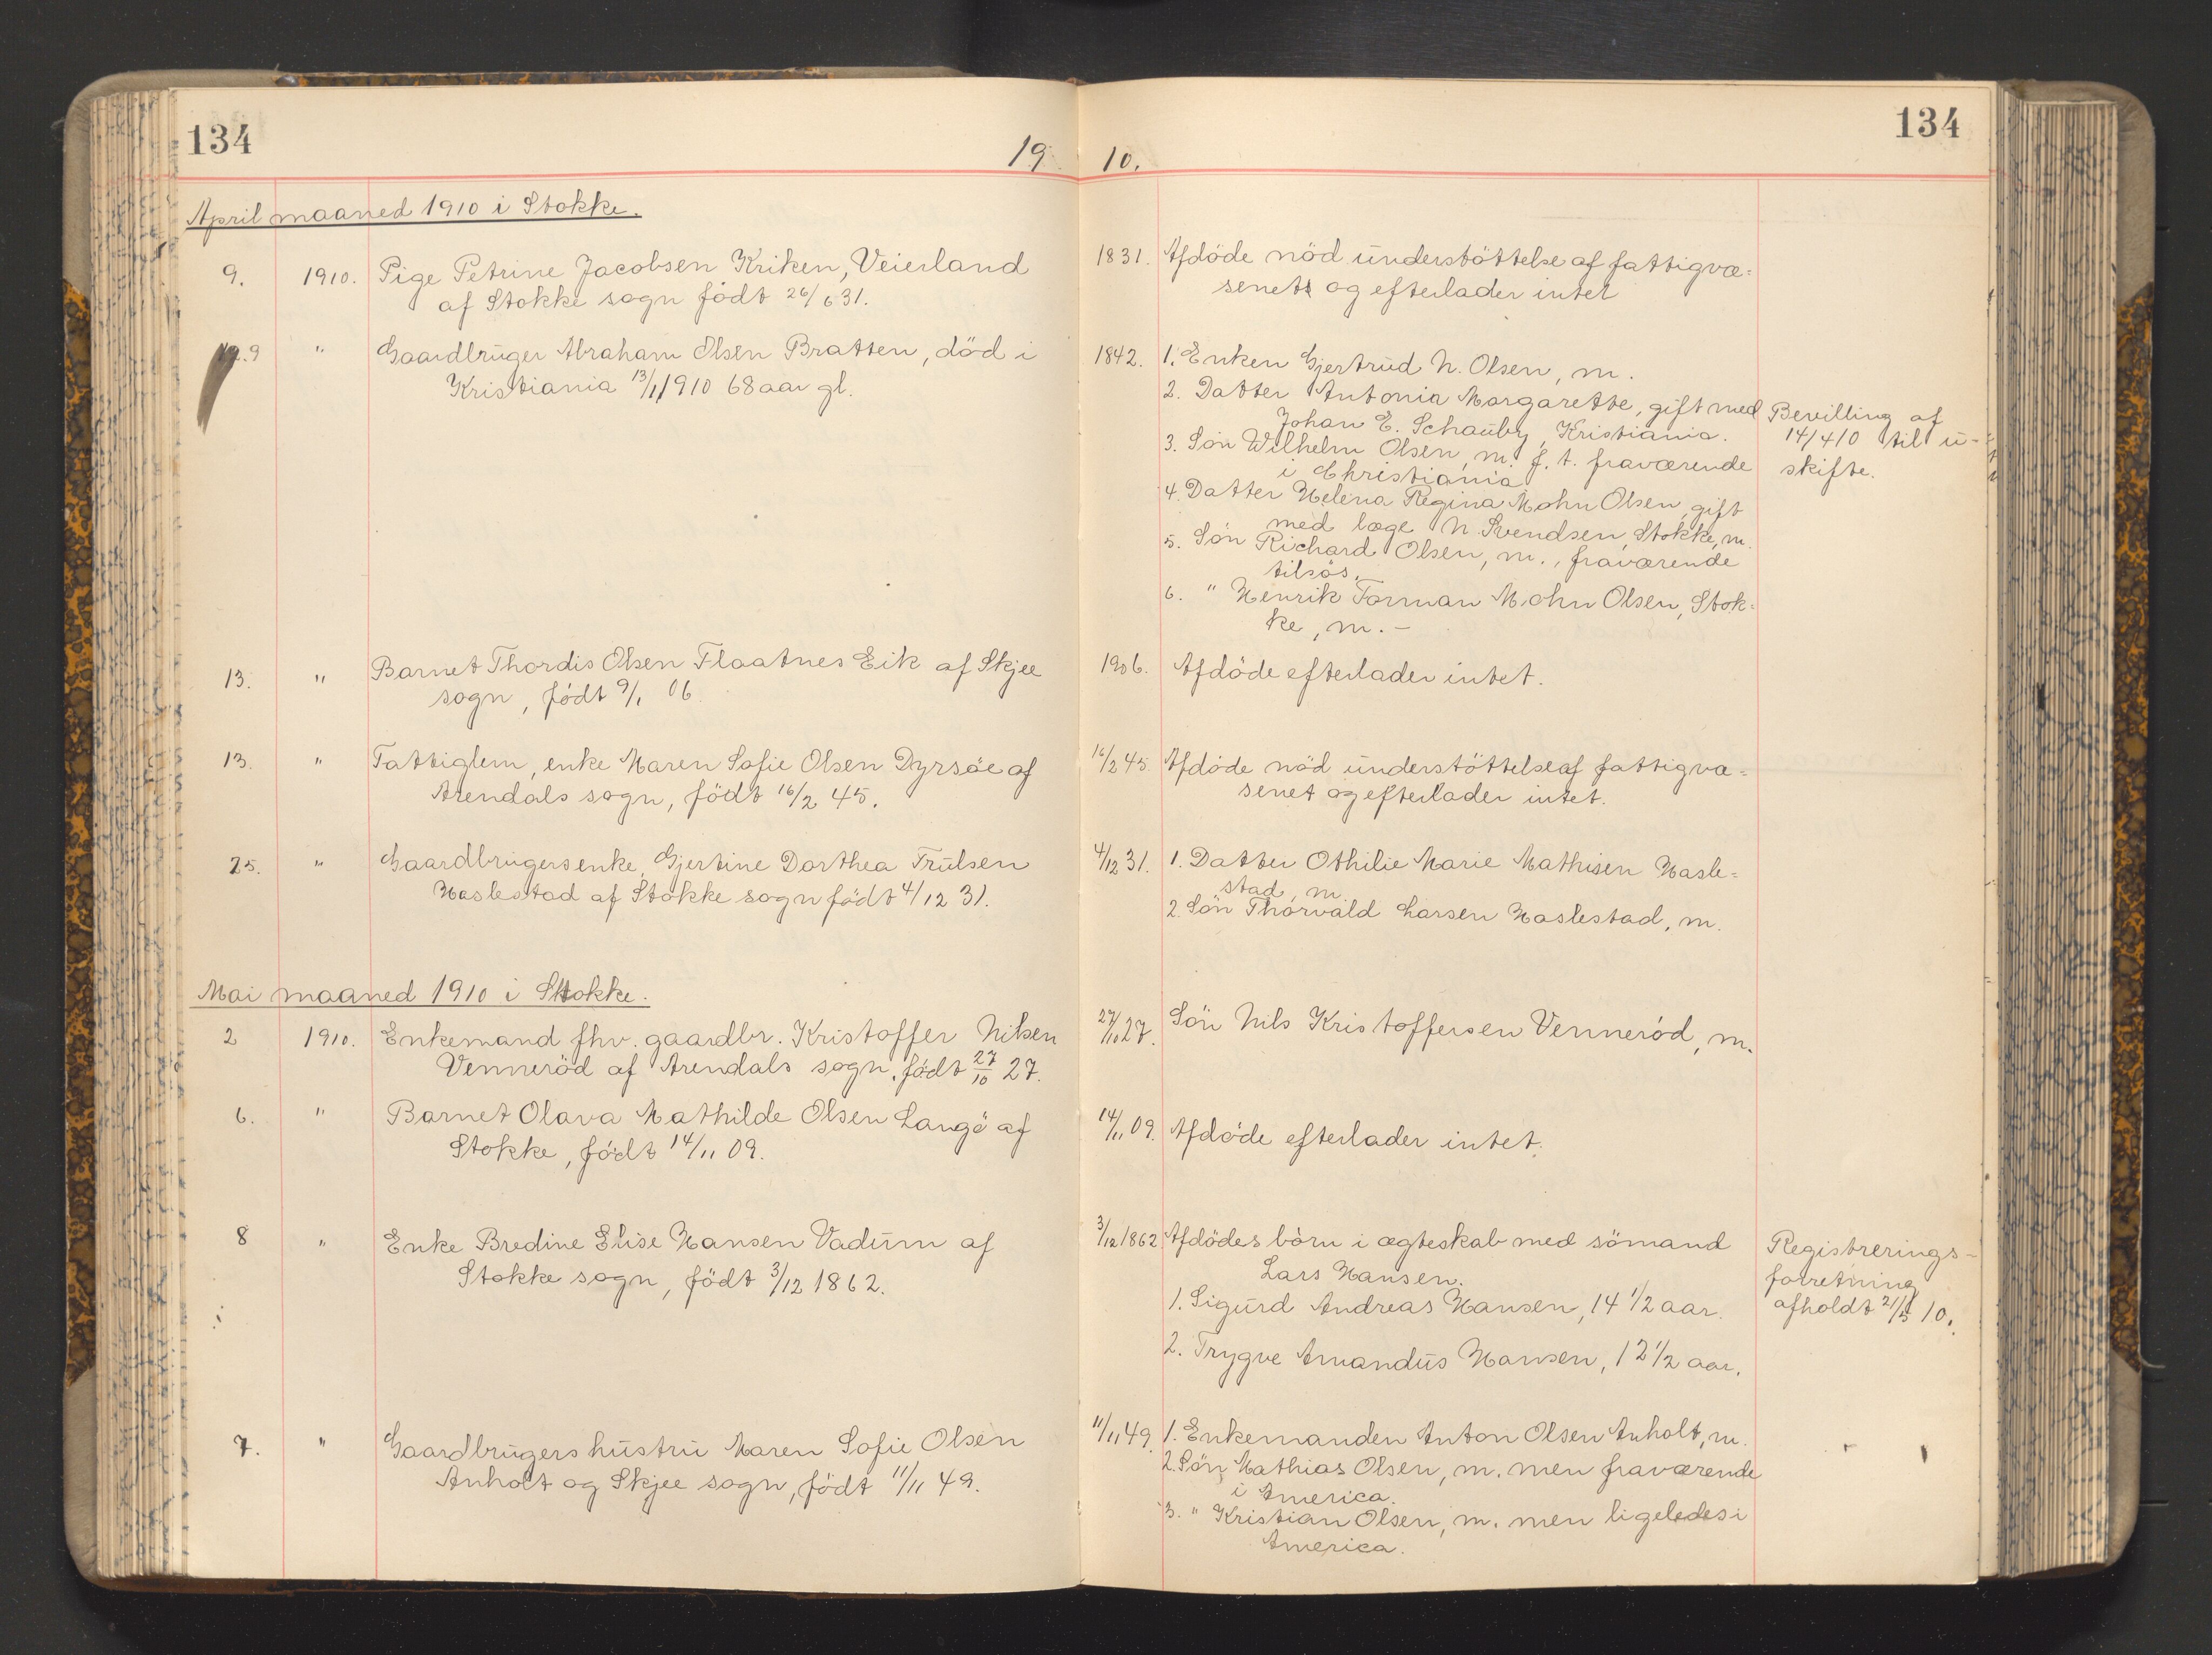 134
134
19 10.
April maaned 1910 i Stokke.
9. 1910. Pige Petrine Jacobsen Kriken, Veierland
af Stokke sogn födt 26/6 31.
1831. Afdöde nöd understöttelse af fattigvæ-
senet og efterlader intet
9 " Gaardbruger Abraham Olsen Bratten, död i
Kristiania 13/1 1910 68 aar gl.
1842. 1. Enken Gjertrud N. Olsen, m.
2. Datter Antonia Margarette, gift med
Johan E. Schauby, Kristiania.
3. Sön Wilhelm Olsen, m. f. t. fraværende
i Christiania
4. Datter Helena Regina Mohn Olsen, gift
med læge N. Svendsen, Stokke, m.
5. Sön Richard Olsen, m., fraværende
tilsös.
6. " Henrik Forman Mohn Olsen, Stok-
ke, m. -
Bevilling af
14/4 10 til u-
skifte.
13. " Barnet Thordis Olsen Flaatnes Eik af Skjee
sogn, födt 9/1 06.
1906. Afdöde efterlader intet.
13. " Fattiglem, enke Maren Sofie Olsen Dyrsöe af
Arendals sogn, födt 16/2 45.
16/2 45. Afdöde nöd understöttelse af fattigvæ-
senet og efterlader intet.
25. " Gaardbrugersenke, Gjertine Dorthea Trulsen
Haslestad af Stokke sogn födt 4/12 31.
4/12 31. 1. Datter Othilie Marie Mathisen Hasle-
stad, m.
2. Sön Thorvald Larsen Haslestad, m.
Mai maaned 1910 i Stokke.
2 1910. Enkemand fhv. gaardbr. Kristoffer Nilsen
Venneröd af Arendals sogn, födt 27/10 27.
27/10 27. Sön Nils Kristoffersen Venneröd, m.
6. " Barnet Olava Mathilde Olsen Langö af
Stokke, födt 14/11 09.
14/11 09. Afdöde efterlader intet.
8 " Enke Bredine Elise Hansen Vadum af
Stokke sogn, födt 3/12 1862.
3/12 1862 Afdödes börn i ægteskab med sömand
Lars Hansen.
1. Sigurd Andreas Hansen, 14 1/2 aar.
2. Trygve Amandus Hansen, 12 1/2 aar.
Registrerings-
forretning
afholdt 21/5 10.
7. " Gaardbrugers hustru Maren Sofie Olsen
Anholt og Skjee sogn, födt 11/11 49.
11/11 49. 1. Enkemanden Anton Olsen Anholt, m.
2. Sön Mathias Olsen, m. men fraværende
i America.
3. " Kristian Olsen, m. men ligeledes i
America.